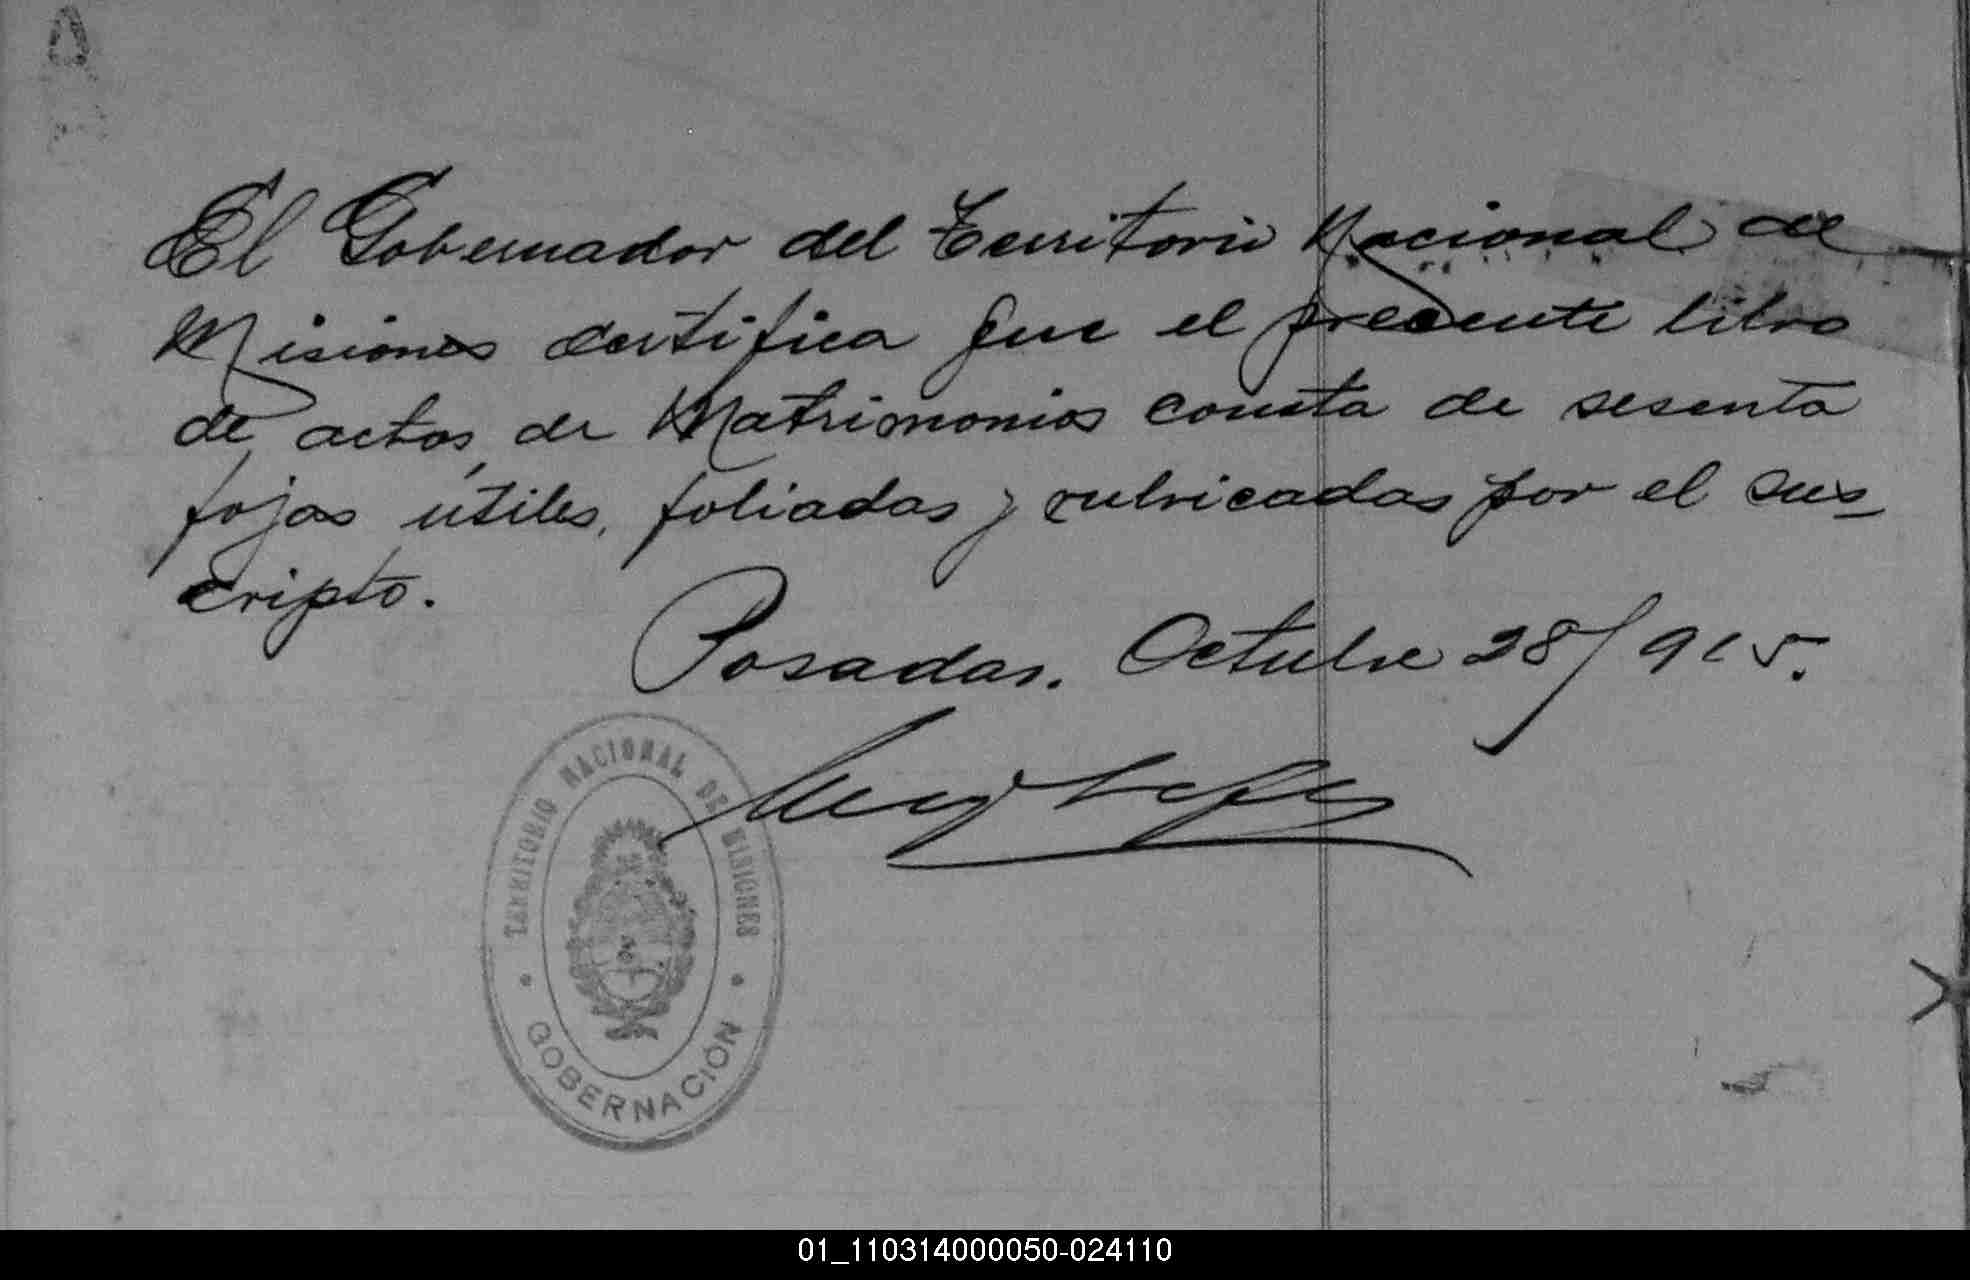 El Gobernador del Territorio Nacional de
Misiones certifica que el presente libro
de actos de Matrimonios consta de sesenta
fojas útiles, foliadas y rubricadas por el sus-
cripto.
Posadas. Octubre 28/915.
TERRITORIO NACIONAL DE MISIONES
GOBERNACIÓN
01_110314000050-024110